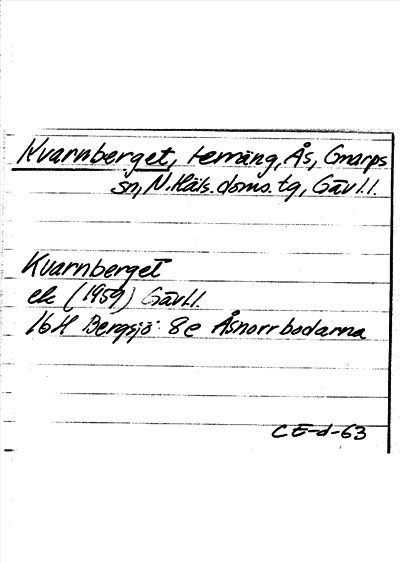 Kvarnberget, terräng, Ås, Gnarps
sn, N. Häls. doms. tg, Gävl.l.
Kvarnberget
ek (1959) Gävl.l.
16H Bergsjö 8e Åsnorrbodarna
CE-d-63